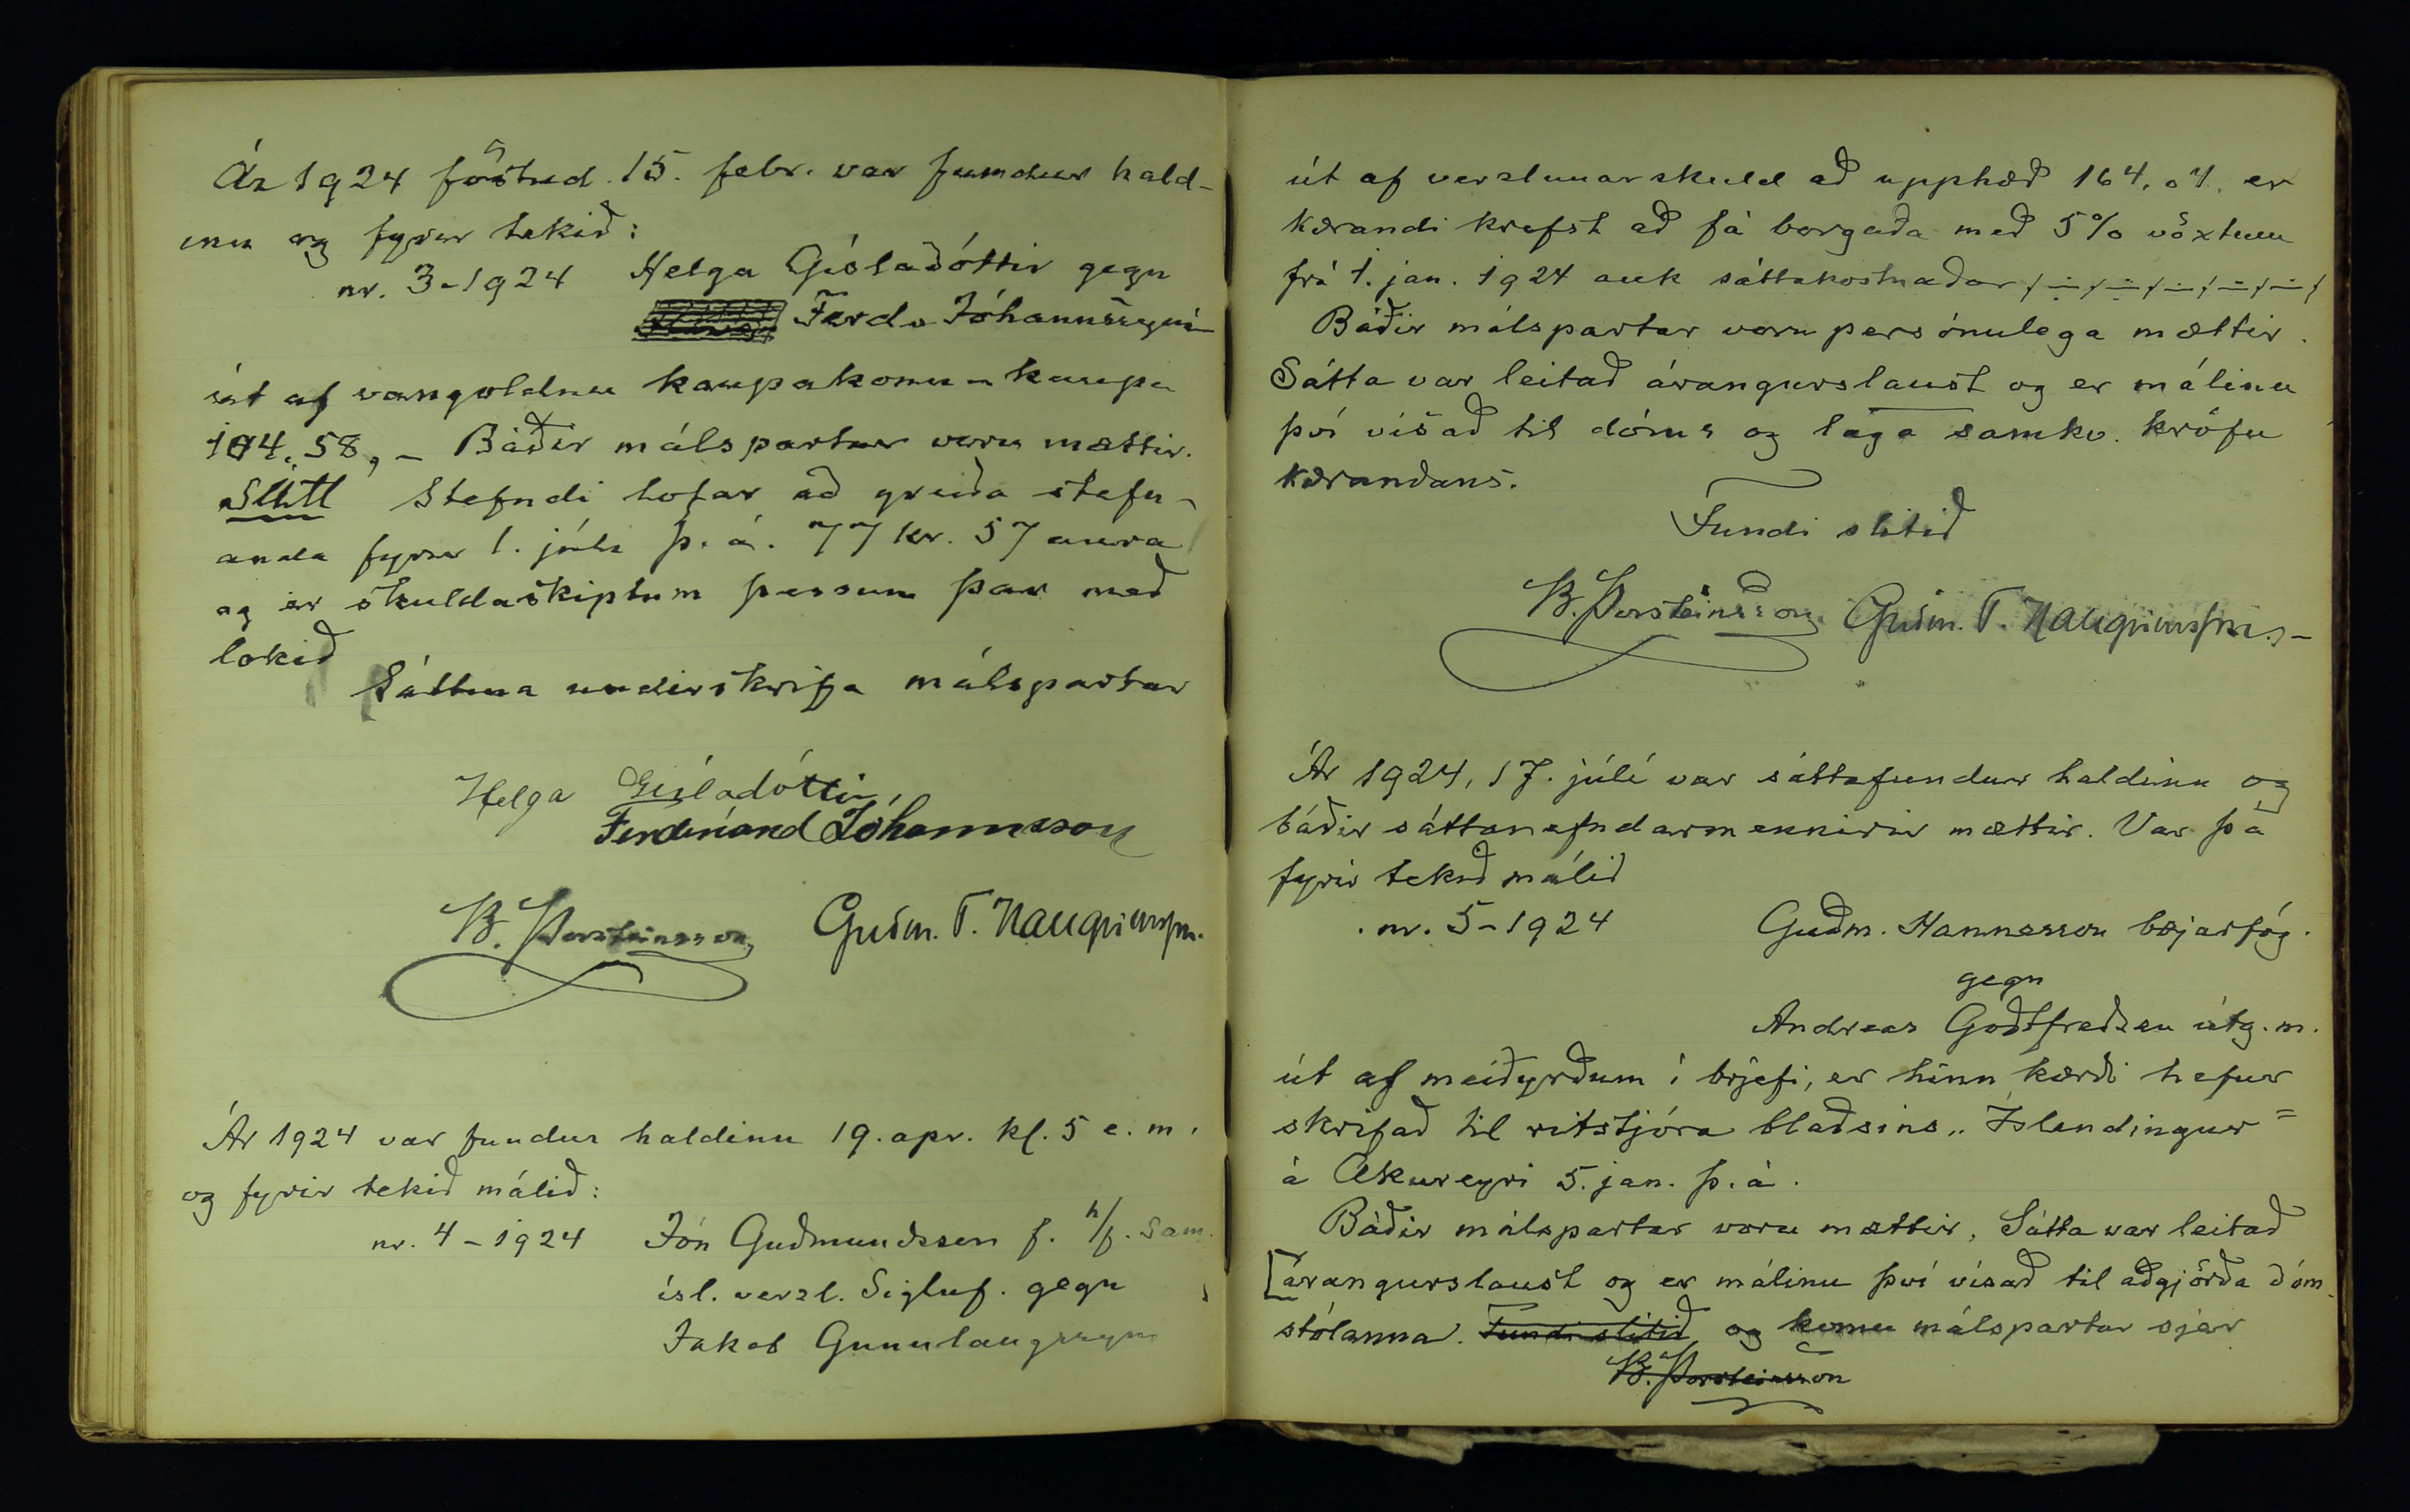 Ár 1924 föstud. 15. febr. var fundur hald-
inn og fyrir tekið:
nr. 3-1924 Helga Gísladóttir gegn
Ferd. Jóhannssyni
út af vangoldnu kaupakonu-kaupi
104.58, - Báðir málspartar voru mættir.
Sátt Stefndi lofar að greiða stefn-
anda fyrir 1. júlí þ. á. 77 kr. 57 aura
og er skuldaskiptum þessum þar með
lokið
Sáttina undirskrifa málspartar
Helga Gísladóttir,
Ferdinand Jóhannsson
B. Þorsteinsson Guðm. T. Hallgrímsson.
Ár 1924 var fundur haldinn 19. apr. kl. 5 e. m.
og fyrir tekið málið:
nr. 4-1924 Jón Guðmundsson f. h/f. Sam.
ísl. verzl. Sigluf. gegn
Jakob Gunnlaugssyni
út af verzlunarskuld að upphæð 164.04. er
kærandi krefst að fá borgaða með 5% vöxtum
frá 1. jan. 1924 auk sáttakostnaðar
Báðir málspartar voru persónulega mættir.
Sátta var leitað árangurslaust og er málinu
því vísað til dóms og laga samkv. kröfu
kærandans.
Fundi slitið
B. Þorsteinsson. Guðm. T. Hallgrímsson. -
Ár 1924, 17. júlí var sáttafundur haldinn og
báðir sáttanefndarmennirnir mættir. Var þá
fyrir tekið málið
nr. 5-1924 Guðm. Hannesson bæjarfóg.
gegn
Andreas Goðtfreðsen útg. m.
út af meiðyrðum í brjefi, er hinn kærði hefur
skrifað til ritstjóra blaðsins „Íslendingur"
á Akureyri 5. jan. þ. á.
Báðir málspartar voru mættir. Sátta var leitað
[árangurslaust og er málinu því vísað til aðgjörða dóm-
stólanna. Fundi slitið, og komu málspartar sjer
B. Þorsteinsson